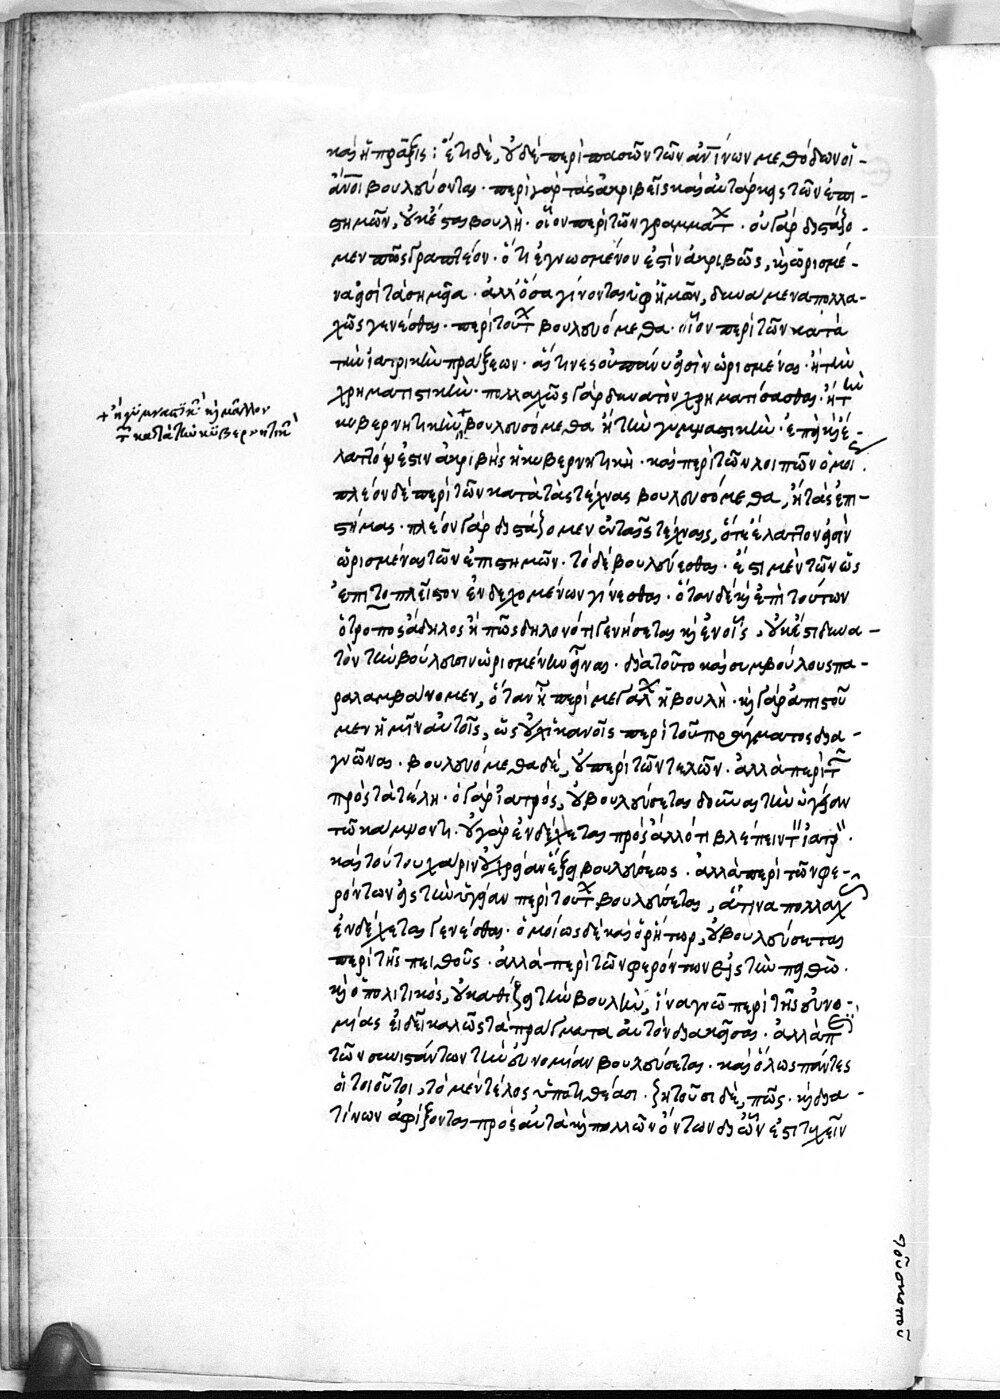 καὶ ἡ πρᾶξις: ἔτι δὲ, οὐδὲ περὶ πασῶν τῶν ἀνίνων μεθόδων οἱ
ἄνοι βουλεύονται· περὶ γὰρ τὰς ἀκριβεῖς καὶ αὐτάρκεις τῶν ἐπι-
στημῶν, οὐκ ἔσται βουλή· οἷον περὶ τῶν γραμμάτ · οὐ γὰρ διστάζο-
μεν πῶς γραπτέον· ὅτι ἐγνωσμένον ἐστὶν ἀκριβῶς, καὶ ὡρισμέ-
να εἰσὶ τὰ σημεῖα· ἀλλ' ὅσα γίνονται ὑφ' ἡμῶν, δυνάμενα πολλα-
χῶς γενέσθαι· περὶ τούτ βουλευόμεθα· οἷον περὶ τῶν κατὰ
τὴν ἰατρικὴν πράξεων· αἵτινες οὐ πάνυ εἰσὶν ὡρισμέναι· ἢ τὴν
χρηματιστικήν· πολλαχῶς γὰρ δυνατὸν χρηματίσασθαι· ἢ τὴν
+ ἢ γυμναστικ καὶ μᾶλλον
τ κατὰ τὴν κυβερνητικὴ
κυβερνητικὴν + βουλευσόμεθα ἢ τὴν γυμναστικήν· ἐπεὶ καὶ ἔ-
λαττόν ἐστιν ἀκριβὴς ἡ κυβερνητική· καὶ περὶ τῶν λοιπῶν ὁμοί
πλέον δὲ περὶ τῶν κατὰ τὰς τέχνας βουλευσόμεθα, ἢ τὰς ἐπι-
στήμας· πλέον γὰρ διστάζομεν ἐν ταῖς τέχναις, ἅτε ἔλαττον εἰσὶν
ὡρισμέναι τῶν ἐπιστημῶν· τὸ δὲ βουλεύεσθαι· ἔστι μὲν τῶν ὡς
ἐπιτοπλεῖστον ἐνδεχομένων γίνεσθαι· ὅταν δὲ καὶ ἐπὶ τούτων
ὁ τρόπος ἄδηλος ᾖ πῶς δηλονότι γενήσεται καὶ ἐν οἷς, οὐκ ἔστι δυνα-
τὸν τὴν βούλευσιν ὡρισμένην εἶναι· διὰ τοῦτο καὶ συμβούλους πα-
ραλαμβάνομεν, ὅταν ᾖ περὶ μεγάλ ἡ βουλή· καὶ γὰρ ἀπιστοῦ
μεν ἡμῖν αὐτοῖς, ὡς οὐχ ἱκανοῖς περὶ τοῦ πράγματος δια-
γνῶναι· βουλευόμεθα δὲ, οὐ περὶ τῶν τελῶν· ἀλλὰ περὶ τῶν
πρὸς τὰ τέλη· ὁ γὰρ ἰατρός, οὐ βουλεύσεται δοῦναι τὴν ὑγείαν
τῷ κάμνοντι· οὐ γὰρ ἐνδέχεται πρὸς ἄλλό τι βλέπειν τ ἰατρ
καὶ τούτου χάριν οὐ χρεία ἕξει βουλεύσεως· ἀλλὰ περὶ τῶν φε-
ρόντων εἰς τὴν ὑγείαν περὶ τούτ βουλεύσεται, ἅτινα πολλαχ
ἐνδέχεται γενέσθαι· ὁμοίως δὲ καὶ ὁ ῥήτωρ, οὐ βουλεύσεται
περὶ τῆς πειθοῦς· ἀλλὰ περὶ τῶν φερόντων εἰς τὴν πειθώ·
καὶ ὁ πολιτικός, οὐ καθίζει τὴν βουλήν, ἵνα γνῷ περὶ τῆς εὐνο-
μίας εἰ δεῖ καλῶς τὰ πράγματα αὐτὸν διακεῖσαι· ἀλλὰ περὶ
τῶν συνιστάντων τὴν εὐνομίαν βουλεύσεται· καὶ ὅλως πάντες
οἱ τοιοῦτοι, τὸ μὲν τέλος ὑποτιθέασι· ζητοῦσι δὲ, πῶς· καὶ διὰ
τίνων ἀφίξονται πρὸς αὐτὰ καὶ πολλῶν ὄντων δι' ὧν ἐστὶ τυχεῖν